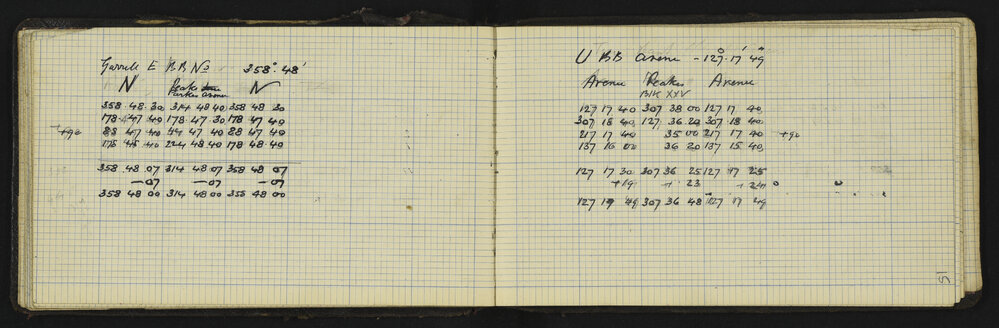 E BB No 358° 48'
N Peake N
Parkes avenue
358 48 30 314 48 40 358 48 30
178 47 40 178 47 30 178 47 40
+90 88 47 40 44 47 40 88 47 40
178 48 40 224 48 40 178 48 40
358 48 07 314 48 07 358 48 07
-07 -07 -07
358 48 00 314 48 00 358 48 00
U BB avenue - 127° 17' 49"
Avenue Peake Avenue
Blk XXV
127 17 40 307 38 00 127 17 40
307 18 40 127 36 20 307 18 40
217 17 40 35 00 217 17 40 +90
137 16 00 36 20 137 15 40
127 17 30 307 36 25 127 17 25
+19 + 23 + 24
127 17 49 307 36 48 127 17 49
51